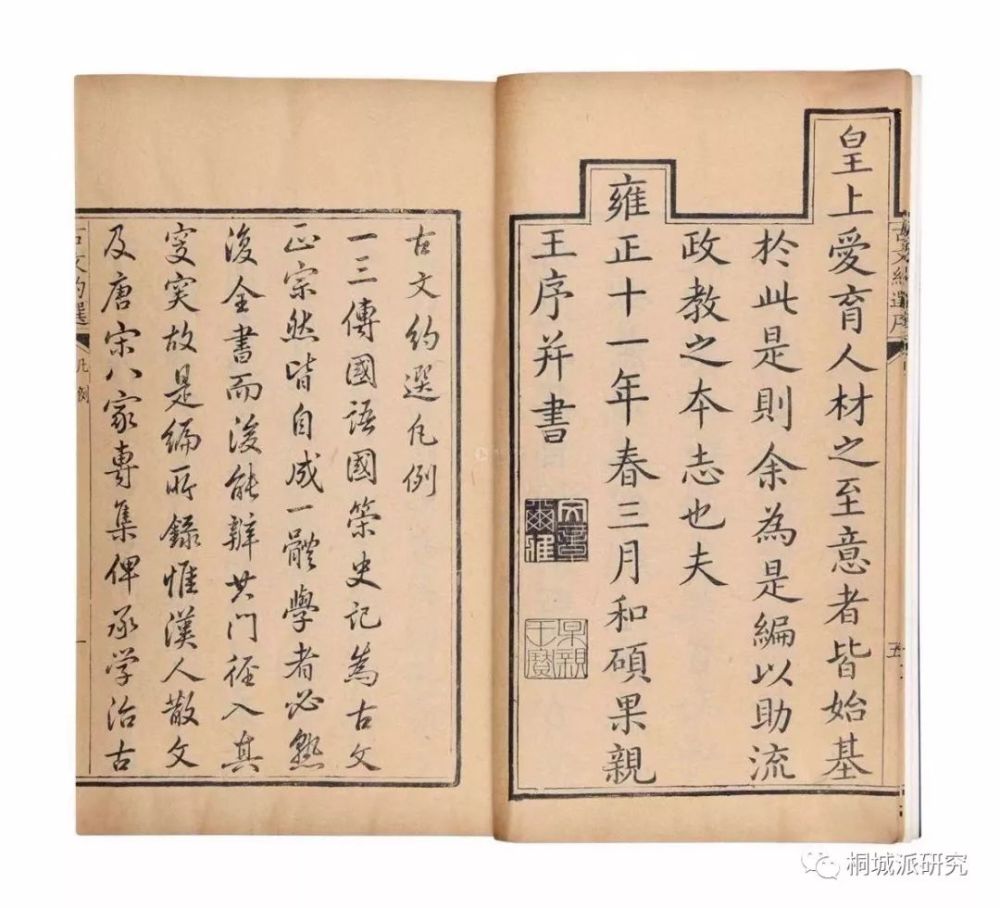 皇上愛育人材之至意者皆始基
於此是則余為是編以助流
政教之本志也夫
雍正十一年春三月和碩果親
王序并書
文章
爾雅
果親
王寶
五
古文約選凡例
一三傳國語國策史記為古文
正宗然皆自成一體學者必熟
復全書而後能辨其門徑入其
窔突故是編所錄惟漢人散文
及唐宋八家專集俾承學治古
古文約選
凡例
一
桐城派研究